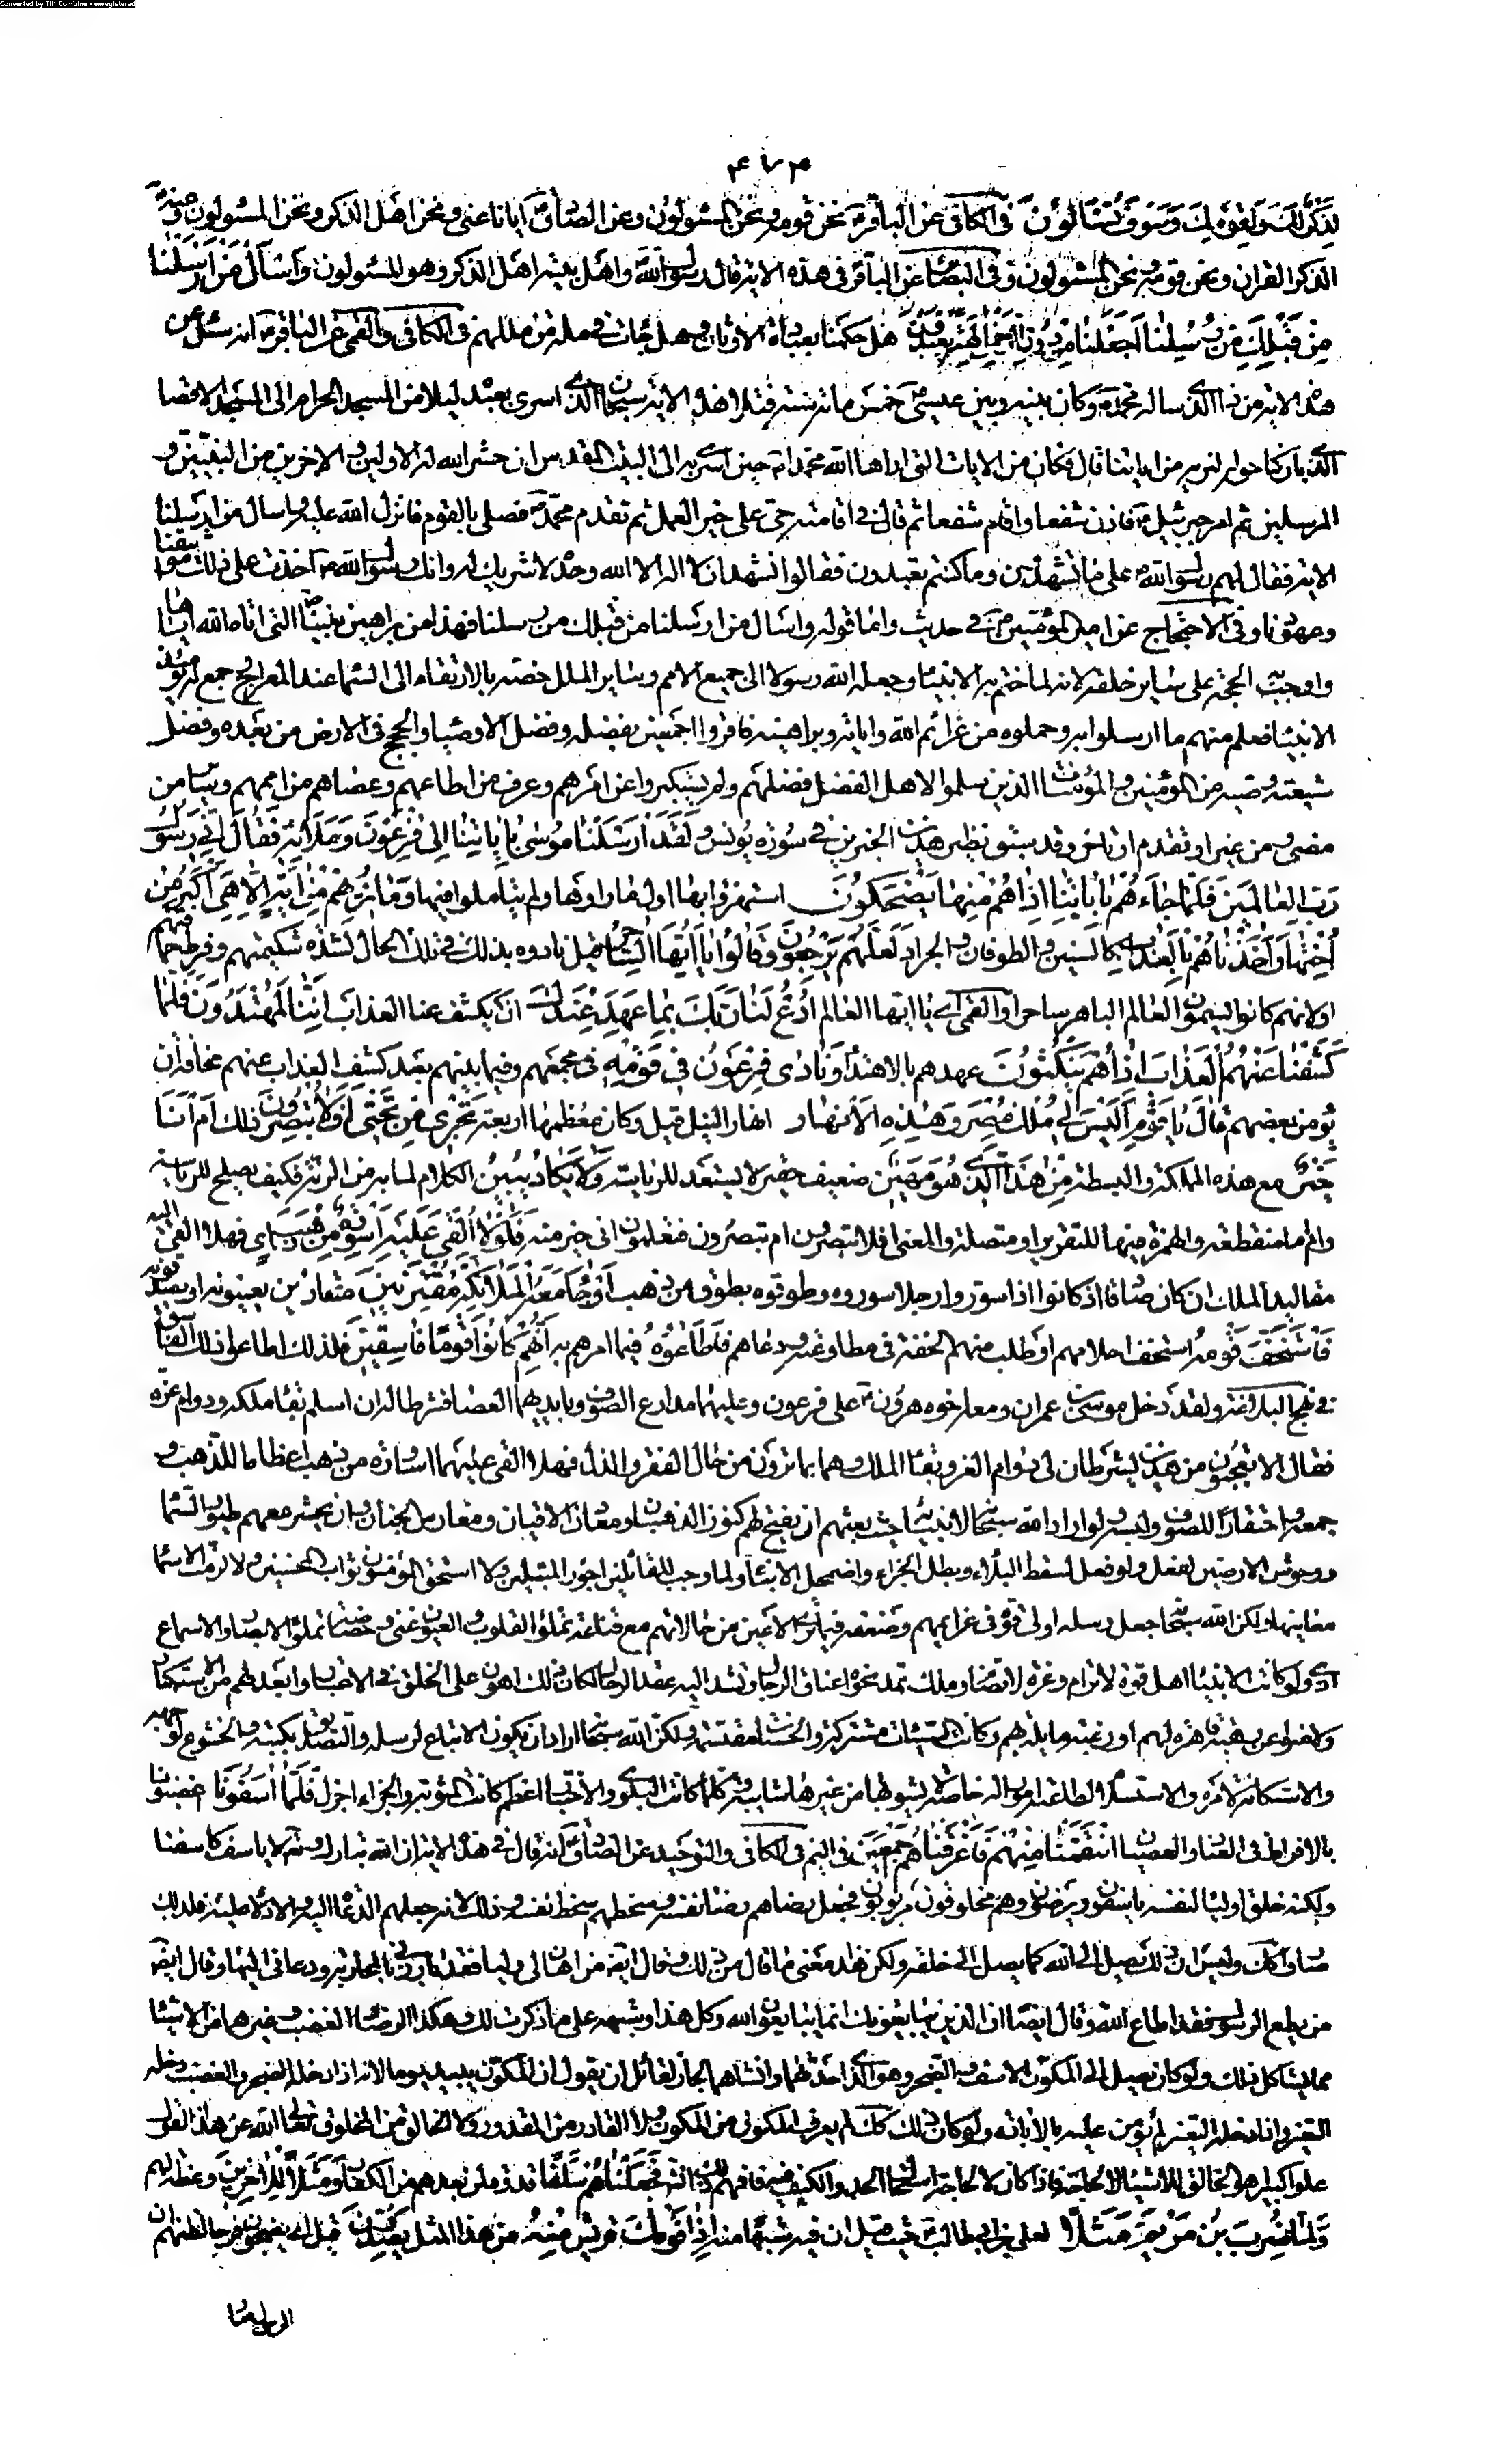 Converted by Tiff Combine - unregistered
لَذِكْرٌ لَكَ وَلِقَوْمِكَ وَسَوْفَ تُسْئَالُونَ فى الكافى عن الباقر نحن قومه ونحن المسئولون وعن الصادق ايانا عنى ونحن اهل الذكر ونحن المسئولون وعنه
الذكر القران ونحن قومه ونحن المسئولون وفى البصائر عن الباقر فى هذه الاية قال رسول الله واهل بيته اهل الذكر وهم المسئولون وَاسْأَلْ مَنْ اَرْسَلْنا
مِنْ قَبْلِكَ مِنْ رُسُلِنا اَجَعَلْنا مِنْ دُونِ الرَّحْمنِ الِهَةً يُعْبَدُونَ هل حكمنا بعبادة الاوثان وهل جائت فى ملة من مللهم فى الكافى والقمى عن الباقر انه سئل عن
هذه الاية من ذا الذى ساله محمد وكان بينه وبين عيسى خمس مائة سنة فتلا هذه الاية سبحان الذى اسرى بعبده ليلا من المسجد الحرام الى المسجد الاقصا
الذى باركنا حوله لنريه من اياتنا قال فكان من الايات التى اراها الله محمدا حين اسرى به الى البيت المقدس ان حشر الله له الاولين والاخرين من النبيين و
المرسلين ثم امر جبرئيل فاذن شفعا واقام شفعا ثم قال فى اقامته حى على خير العمل ثم تقدم محمد فصلى بالقوم فانزل الله عليه واسال من ارسلنا
الاية فقال لهم رسول الله على ما تشهدون وما كنتم تعبدون فقالوا نشهد ان لا اله الا الله وحده لا شريك له وانك رسول الله اخذت على ذلك مواثيقنا
وعهودنا وفى الاحتجاج عن امير المؤمنين فى حديث واما قوله واسال من ارسلنا من قبلك من رسلنا فهذا من براهين نبينا التى اتاه الله اياها
واوجب به الحجة على ساير خلقه لانه لما ختم به الانبياء وجعله الله رسولا الى جميع الامم وساير الملل خصه بالارتقاء الى السماء عند المعراج وجمع له يومئذ
الانبياء فعلم منهم ما ارسلوا به وحملوه من عزائم الله واياته وبراهينه فاقروا اجمعين بفضله وفضل الاوصياء والحجج فى الارض من بعده وفضل
شيعة وصيه من المؤمنين والمؤمنات الذين سلموا لاهل الفضل فضلهم ولم يستكبروا عن امرهم وعرف من اطاعهم وعصاهم من اممهم وساير من
مضى ومن غبر او تقدم او تاخر وقد سبق نظير هذين الخبرين فى سورة يونس وَلَقَدْ اَرْسَلْنا مُوسى بِاياتِنا اِلى فِرْعَوْنَ وَمَلَائِهِ فَقالَ اِنّى رَسُولُ
رَبِّ الْعالَمينَ فَلَمّا جاءَهُمْ بِاياتِنا اِذا هُمْ مِنْها يَضْحَكُونَ استهزؤا بها اول ما راوها ولم يتاملوا فيها وَما نُريهِمْ مِنْ ايَةٍ اِلّا هِىَ اَكْبَرُ مِنْ
اُخْتِها وَاَخَذْناهُمْ بِالْعَذابِ كالسنين والطوفان والجراد لَعَلَّهُمْ يَرْجِعُونَ وَقالُوا يا اَيُّهَا السّاحِرُ قيل نادوه بذلك فى تلك الحال لشدة شكيمتهم وفرط حماقتهم
او لانهم كانوا يسمون العالم الباهر ساحرا والقمى اى يا ايها العالم ادْعُ لَنا رَبَّكَ بِما عَهِدَ عِنْدَكَ ان يكشف عنا العذاب اِنَّنا لَمُهْتَدُونَ فَلَمّا
كَشَفْنا عَنْهُمُ الْعَذابَ اِذا هُمْ يَنْكُثُونَ عهدهم بالاهتداء وَنادى فِرْعَوْنُ فى قَوْمِهِ فى مجمعهم وفيما بينهم بعد كشف العذاب عنهم مخافة ان
يؤمن بعضهم قالَ يا قَوْمِ اَلَيْسَ لى مُلْكُ مِصْرَ وَهذِهِ الْاَنْهارُ انهار النيل قيل وكان معظمها اربعة تَجْرى مِنْ تَحْتى اَفَلا تُبْصِرُونَ ذلك اَمْ اَنَا
خَيْرٌ مع هذه المملكة والبسطة مِنْ هذَا الَّذى هُوَ مَهينٌ ضعيف حقير لا يستعد للرئاسة وَلا يَكادُ يُبينُ الكلام لما به من الرتة فكيف يصلح للرئاسة
وام اما منقطعة والهمزة فيها للتقرير او متصلة والمعنى افلا تبصرون ام تبصرون فتعلمون انى خير منه فَلَوْلا اُلْقِىَ عَلَيْهِ اَسْوِرَةٌ مِنْ ذَهَبٍ اى فهلا القى اليه
مقاليد الملك ان كان صادقا اذ كانوا اذا سوروا رجلا سوروه وطوقوه بطوق من ذهب اَوْ جاءَ مَعَهُ الْمَلائِكَةُ مُقْتَرِنينَ متقارنين يعينونه او يصدقونه
فَاسْتَخَفَّ قَوْمَهُ استخف احلامهم او طلب منهم الخفة فى مطاوعته ودعاهم فَاَطاعُوهُ فيما امرهم به اِنَّهُمْ كانُوا قَوْمًا فاسِقينَ فلذلك اطاعوا ذلك الفاسق
فى نهج البلاغة ولقد دخل موسى بن عمران ومعه اخوه هرون على فرعون وعليهما مدارع الصوف وبايديهما العصا فشرطا له ان اسلم بقاء ملكه ودوام عزه
فقال الا تعجبون من هذين يشرطان لى دوام العز وبقاء الملك وهما بما ترون من حال الفقر والذل فهلا القى عليهما اساورة من ذهب اعظاما للذهب و
جمعه واحتقارا للصوف ولبسه ولو اراد الله سبحانه لانبيائه حيث بعثهم ان يفتح لهم كنوز الذهبان ومعادن العقيان ومغارس الجنان وان يحشر معهم طيور السماء
ووحوش الارضين لفعل ولو فعل لسقط البلاء وبطل الجزاء واضمحل الانباء ولما وجب للقابلين اجور المبتلين ولا استحق المؤمنون ثواب المحسنين ولا لزمت الاسماء
معانيها ولكن الله سبحانه جعل رسله اولى قوة فى عزايمهم وضعفة فيما ترى الاعين من حالاتهم مع قناعة تملؤ القلوب والعيون غنى وخصاصة تملؤ الابصار والاسماع
اذى ولو كانت الانبياء اهل قوة لا ترام وعزة لا تضام وملك تمد نحوه اعناق الرجال وتشد اليه عقد الرحال لكان ذلك اهون على الخلق فى الاعتبار وابعد لهم من الاستكبار
ولامنوا عن رهبة قاهرة لهم او رغبة مايلة بهم وكانت السيئات مشتركة والحسنات مقتسمة ولكن الله سبحانه اراد ان يكون الاتباع لرسله والتصديق بكتبه والخشوع لوجهه
والاستكانة لامره والاستسلام لطاعته امورا له خاصة لا يشوبها من غيرها شايبة وكلما كانت البلوى والاختبار اعظم كانت المثوبة والجزاء اجزل فَلَمّا اسَفُونا اغضبونا
بالافراط فى العناد والعصيان انْتَقَمْنا مِنْهُمْ فَاَغْرَقْناهُمْ اَجْمَعينَ فى اليم فى الكافى والتوحيد عن الصادق انه قال فى هذه الاية ان الله تبارك وتعالى لا ياسف كاسفنا
ولكنه خلق اولياء لنفسه ياسفون ويرضون وهم مخلوقون مربوبون فجعل رضاهم رضا نفسه وسخطهم سخط نفسه وذلك لانه جعلهم الدعاة اليه والادلاء عليه فلذلك
صاروا كذلك وليس ان ذلك يصل الى الله كما يصل الى خلقه ولكن هذا معنى ما قال من ذلك وقال ايضا من اهان لى وليا فقد بارزنى بالمحاربة ودعانى اليها وقال ايضا
من يطع الرسول فقد اطاع الله وقال ايضا ان الذين يبايعونك انما يبايعون الله وكل هذا وشبهه على ما ذكرت لك وهكذا الرضا والغضب وغيرهما من الاشياء
مما يشاكل ذلك ولو كان يصل الى المكون الاسف والضجر وهو الذى احدثهما وانشاهما لجاز لقائل ان يقول ان المكون يبيد يوما لانه اذا دخله الضجر والغضب دخله
التغير واذا دخله التغير لم يؤمن عليه بالابادة ولو كان ذلك كذلك لم يعرف المكون من المكون ولا القادر من المقدور ولا الخالق من المخلوق تعالى الله عن هذا القول
علوا كبيرا هو الخالق للاشياء لا لحاجة فاذا كان لا لحاجة استحال الحد والكيف فيه فافهم ذلك انشاء الله فَجَعَلْناهُمْ سَلَفًا قدوة لمن بعدهم من الكفار وَمَثَلًا لِلْاخِرينَ وعظة لهم
وَلَمّا ضُرِبَ ابْنُ مَرْيَمَ مَثَلًا لعلى بن ابى طالب حيث قيل ان فيه شبها منه اِذا قَوْمُكَ قريش مِنْهُ من هذا المثل يَصِدُّونَ قيل اى يضجون فرحا لظنهم ان